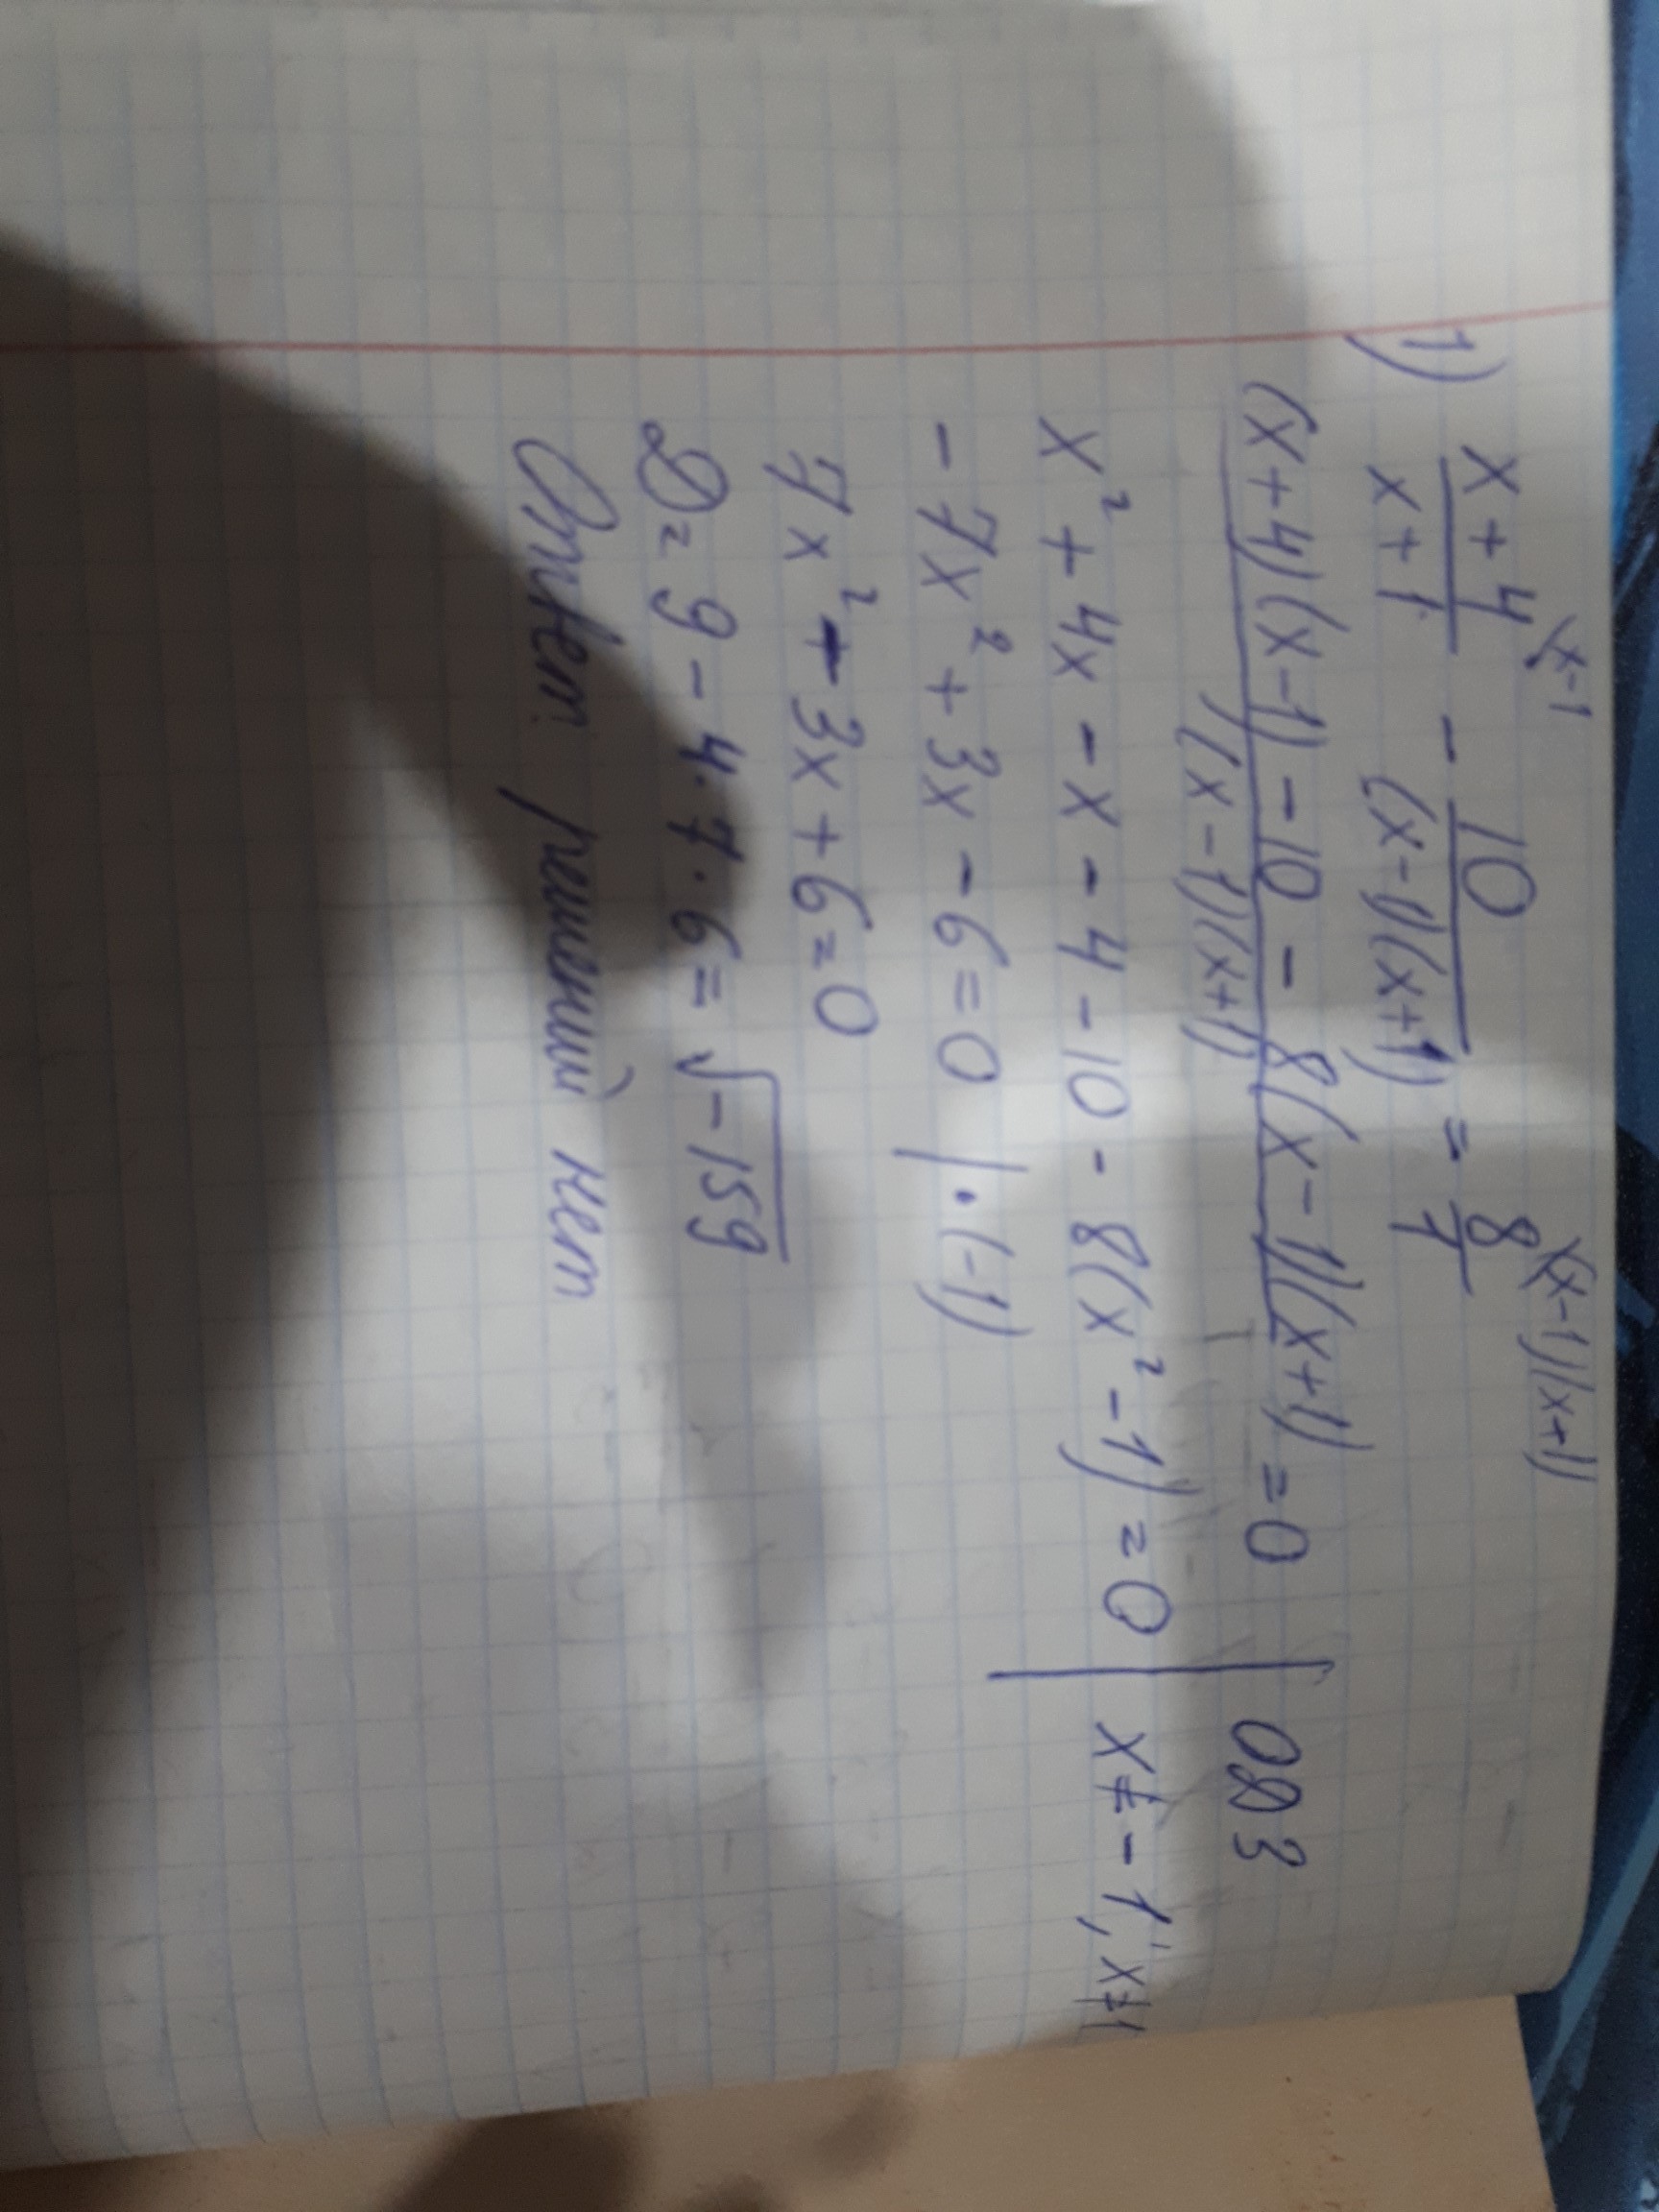 1) x+4^(x-1/x+1 - 10/(x-1)(x+1) = 8^((x-1)(x+1)/1
(x+4)(x-1)-10-8(x-1)(x+1)/(x-1)(x+1) = 0
ОДЗ
x² + 4x - x - 4 - 10 - 8(x² - 1) = 0
x ≠ -1, x ≠ 1
- 7x² + 3x - 6 = 0 | · (-1)
7x² - 3x + 6 = 0
D = 9 - 4 · 7 · 6 = √-159
Ответ решений нет